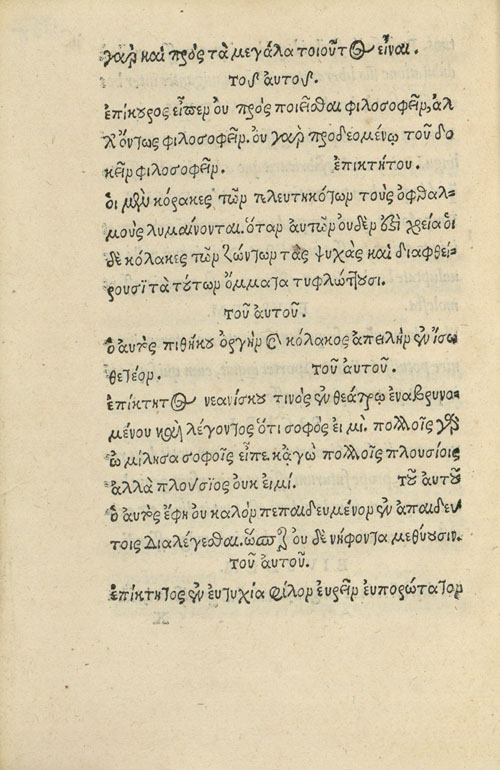 γὰρ καὶ πρὸς τὰ μεγάλα τοιοῦτος εἶναι.
τοῦ αὐτοῦ.
ἐπίκουρος εἶπεν οὐ πρὸς ποιεῖσθαι φιλοσοφεῖν, ἀλ
λ' ὄντως φιλοσοφεῖν. οὐ γὰρ προσδεομένῳ τοῦ δο
κεῖν φιλοσοφεῖν. ἐπικτήτου.
ὁι μὲν κόρακες τῶν τελευτηκότων τοὺς ὀφθαλ=
μοὺς λυμαίνονται. ὅταν αυτῶν ουδὲν ἔτι χρεία ὁι
δὲ κόλακες τῶν ζώντων τὰς ψυχὰς καὶ διαφθεί
ρουσϊ τὰ τούτων ὄμματα τυφλώττουσι.
τοῦ ἀυτοῦ.
ὁ ἀυτὸς πιθήκου ὀργὴν καὶ κόλακος ἀπειλὴν ἐν ἴσω
θετέον. τοῦ ἀυτοῦ.
ἐπίκτητος νεανίσκου τινὸς ἐν θεάτρῳ ἐναβρυνο=
μένου καὶ λέγοντος ὅτι σοφός ει μί. πολλοῖς γὰρ
ὡμίλησα σοφοῖς εἶπε. κἀγὼ πολλοῖς πλουσίοις
ἀλλὰ πλούσϊος ουκ ειμί. τοῦ αυτοῦ
ὁ αυτὸς ἔφη ου καλὸν πεπαιδευμένον ἐν ἀπαιδεύ
τοις διαλέγεσθαι. ὥσπερ ου δὲ νήφοντα μεθύουσιν.
τοῦ αυτοῦ.
ἐπίκτητος ἐν ευτυχία φίλον ευρεῖν ευπορώτατον